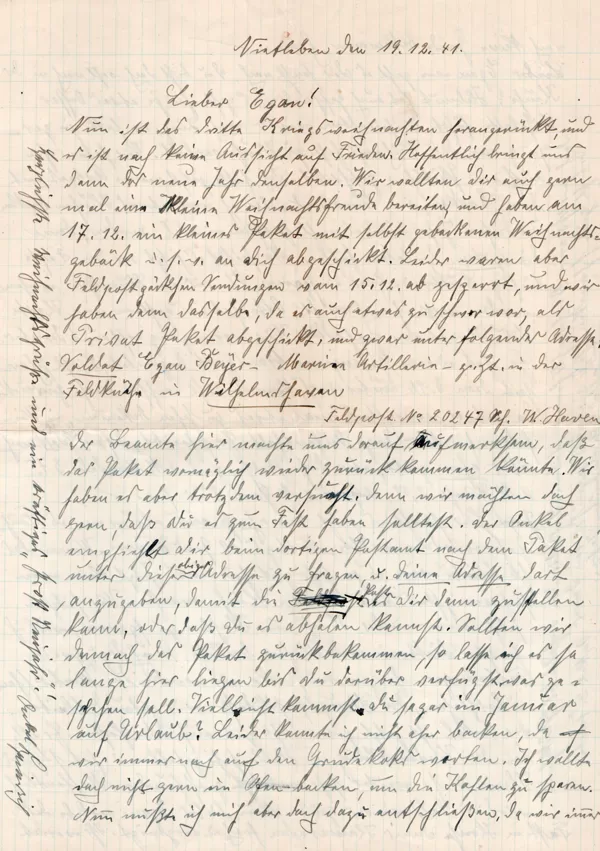 Nietleben den 19.12.41.
Lieber Egon!
Nun ist das dritte Kriegsweihnachten herangerückt, und
es ist noch keine Aussicht auf Frieden. Hoffentlich bringt uns
denn das neue Jahr denselben. Wir wollten dir auch gern
mal eine kleine Weihnachtsfreude bereiten, und haben am
17.12. ein kleines Paket mit selbst gebackenen Weihnachts-
gebäck u.s.w. an dich abgeschickt. Leider waren aber
Feldpostpäckchen Sendungen vom 15.12. ab gesperrt, und wir
haben dann dasselbe, da es auch etwas zu schwer war, als
Privat Paket abgeschickt, und zwar unter folgender Adresse.
Soldat Egon Beyer - Marine Artillerie - z.Zt. in der
Feldküche in Wilhelmshaven
Feldpost No 20247 Sch. W. Haven
Der Beamte hier machte uns darauf aufmerksam, daß
das Paket womöglich wieder zurück kommen könnte. Wir
haben es aber trotzdem versucht. denn wir möchten doch
gern daß du es zum Fest haben solltest. Der Onkel
empfiehlt dir beim dortigen Postamt nach dem Paket
unter dieser obiger Adresse zu fragen, u. deine Adresse dort
anzugeben, damit die Post es dir dann zustellen
kann, oder daß du es abholen kannst. Sollten wir
demnach das Paket zurückbekommen, so lasse ich es so
lange hier liegen bis du darüber verfügst was ge-
schehen soll. Vielleicht kommst du sogar im Januar
auf Urlaub? Leider konnte ich nicht eher backen, da
wir immer noch auf den Grudekoks warten. Ich wollte
doch nicht gern im Ofen backen, um die Kohlen zu sparen.
Nun mußte ich mich aber doch dazu entschließen, da wir immer
Herzlichste Weihnachtsgrüße und ein kräftiges "Prost Neujahr"! Onkel Heinrich